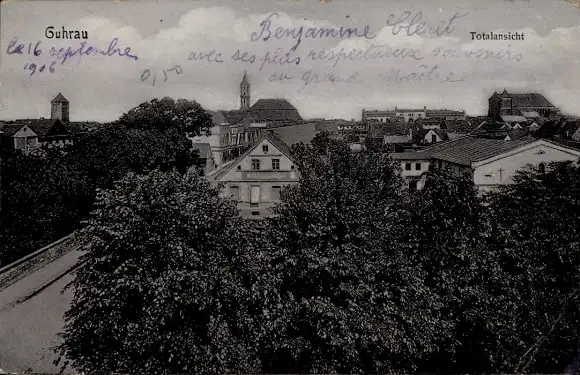 Guhrau
Totalansicht
le 16 septembre
1906
0,50
Benjamine
avec ses plus respectueux souvenirs
au grand Maître